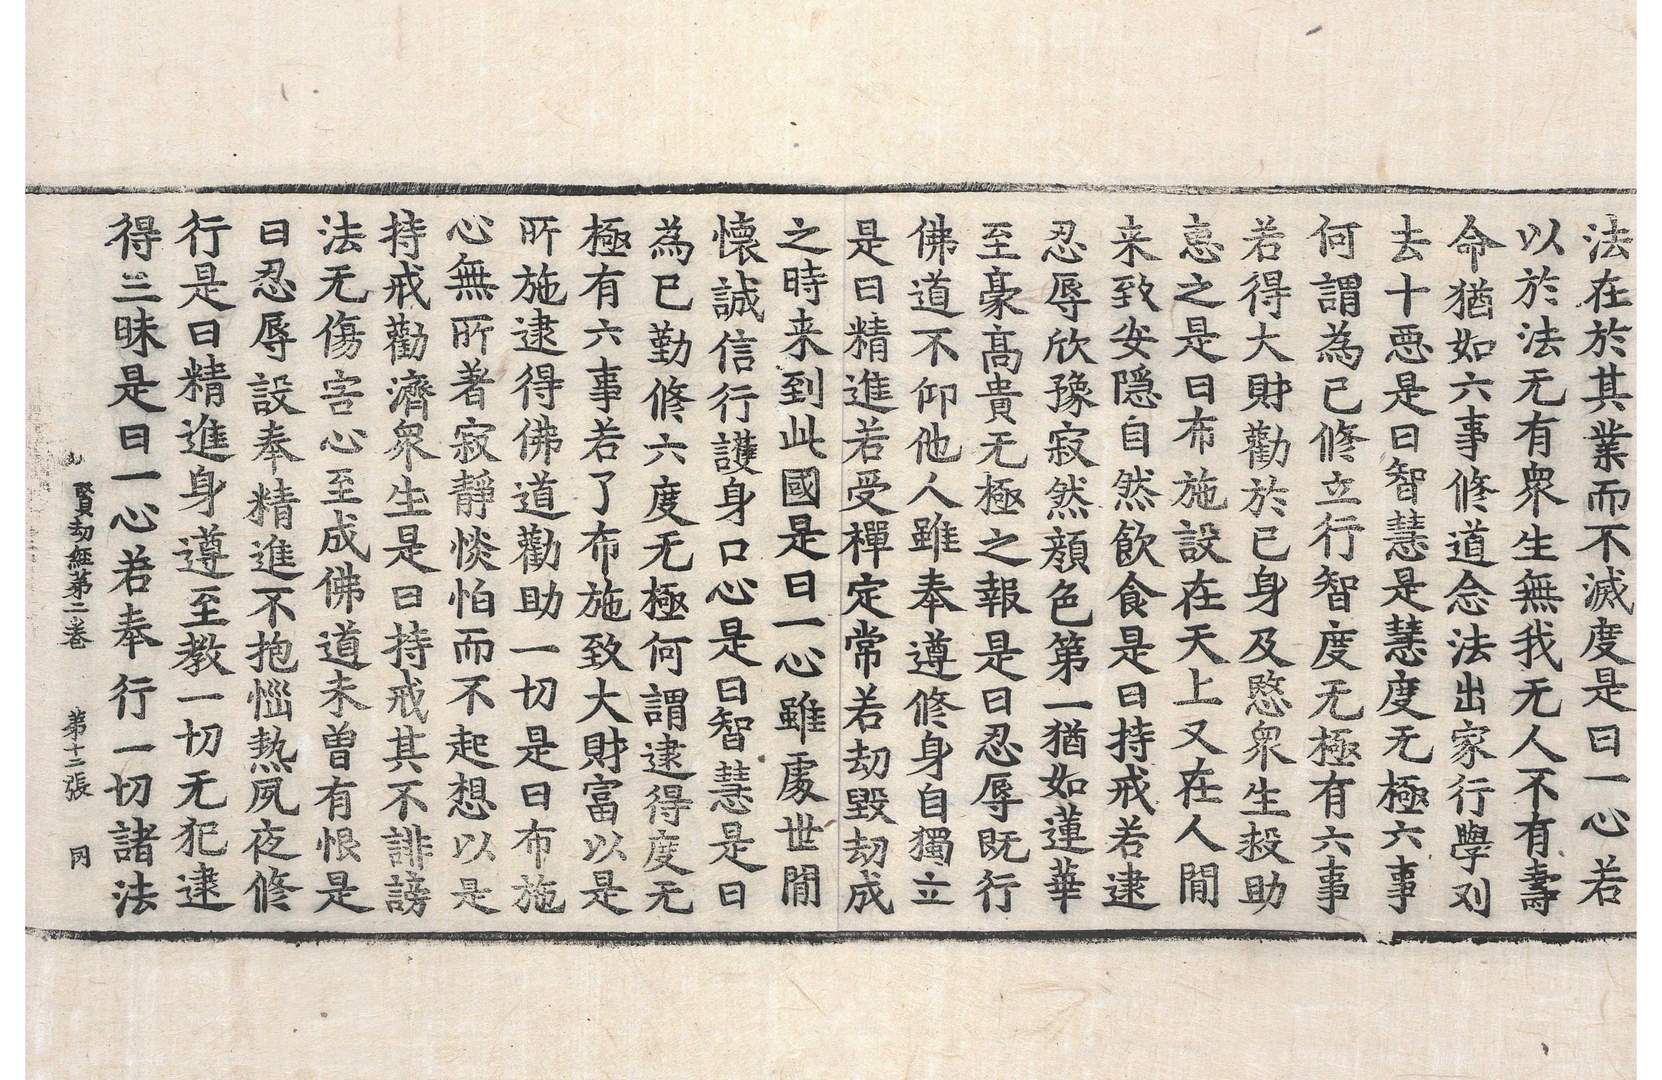 法在於其業而不滅度是曰一心若
以於法无有衆生無我无人不有壽
命猶如六事修道念法出家行學刈
去十惡是曰智慧是慧度无極六事
何謂為已修立行智度无極有六事
若得大財勸於已身及愍衆生投助
惪之是曰布施設在天上又在人間
来致安隱自然飲食是曰持戒若逮
忍辱欣豫寂然顔色第一猶如蓮華
至豪髙貴无極之報是曰忍辱既行
佛道不仰他人雖奉遵修身自獨立
是曰精進若受禪定常若劫毀劫成
之時来到此國是曰一心雖處世間
懷誠信行護身口心是曰智慧是曰
為已勤修六度无極何謂逮得度无
極有六事若了布施致大財富以是
所施逮得佛道勸助一切是曰布施
心無所著寂靜惔怕而不起想以是
持戒勸濟衆生是曰持戒其不誹謗
法无傷害心至成佛道未曽有恨是
曰忍辱設奉精進不抱惱熱夙夜修
行是曰精進身遵至教一切无犯逮
得三昧是曰一心若奉行一切諸法
賢劫經第二卷 第十二張 冈